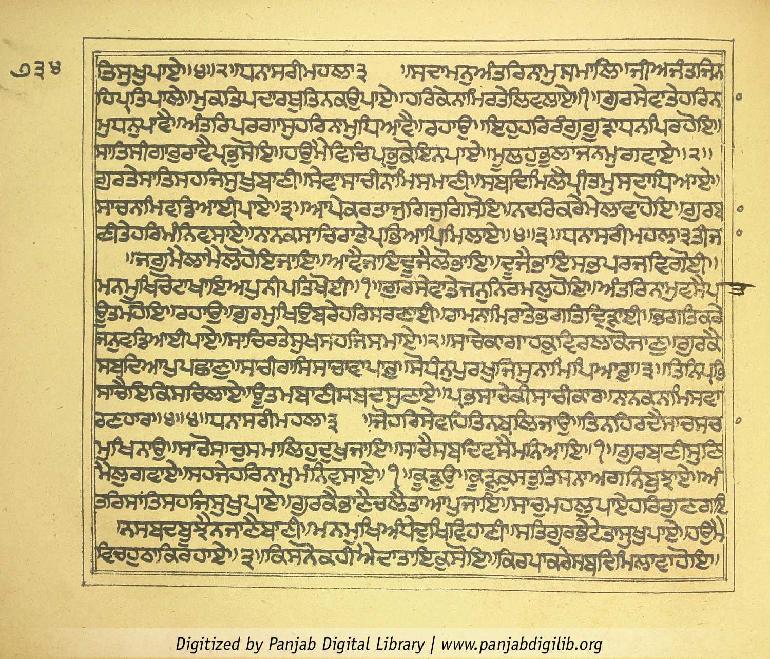 ੭੩੪
ਤਿਸੁਖੁਪਾਏ॥੪॥੨॥ਧਨਾਸਰੀਮਹਲਾ੩ ॥ਸਦਾਮਨੁਅੰਤਰਿਨਾਮੁਸਮਾਲਿ॥ਜੀਅਜੰਤਜਿਨ
ਹਿਪ੍ਰਤਿਪਾਲੇ॥ਮੁਕਤਿਪਦਾਰਥੁਤਿਨਕਉਪਾਏ॥ਹਰਿਕੈਨਾਮਿਰਤੇਲਿਵਲਾਏ॥੧॥ਗੁਰਸੇਵਾਤੇਹਰਿਨਾ
ਮੁਧਨੁਪਾਵੈ॥ਅੰਤਰਿਪਰਗਾਸੁਹਰਿਨਾਮੁਧਿਆਵੈ॥ਰਹਾਉ॥ਇਹੁਹਰਿਰੰਗੁਗੂੜਾਧਨਪਿਰਹੋਇ॥
ਸਾਂਤਿਸੀਗਾਰੁਰਾਵੈਪ੍ਰਭੁਸੋਇ॥ਹਉਮੈਵਿਚਿਪ੍ਰਭੁਕੋਇਨਪਾਏ॥ਮੂਲਹੁਭੁਲਾਜਨਮੁਗਵਾਏ॥੨॥
ਗੁਰਤੇਸਾਤਿਸਹਜਿਸੁਖੁਬਾਣੀ॥ਸੇਵਾਸਾਚੀਨਾਮਿਸਮਾਣੀ॥ਸਬਦਿਮਿਲੈਪ੍ਰੀਤਮੁਸਦਾਧਿਆਏ॥
ਸਾਚਨਾਮਿਵਡਿਆਈਪਾਏ॥੩॥ਆਪੇਕਰਤਾਜੁਗਿਜੁਗਿਸੋਇ॥ਨਦਰਿਕਰੇਮੇਲਾਵਾਹੋਇ॥ਗੁਰਬਾ
ਣੀਤੇਹਰਿਮੰਨਿਵਸਾਏ॥ਨਾਨਕਸਾਚਿਰਾਤੇਪ੍ਰਭਿਆਪਿਮਿਲਾਏ॥੪॥੩॥ਧਨਾਸਰੀਮਹਲਾ੩ਤੀਜਾ
॥ਜਗੁਮੈਲਾਮੈਲੋਹੋਇਜਾਇ॥ਆਵੈਜਾਇਦੂਜੈਲੋਭਾਇ॥ਦੂਜੈਭਾਇਸਭਪਰਜਵਿਗੋਈ॥
ਮਨਮੁਖਿਚੋਟਾਖਾਇਅਪੁਨੀਪਤਿਖੋਈ॥੧॥ਗੁਰਸੇਵਾਤੇਜਨੁਨਿਰਮਲੁਹੋਇ॥ਅੰਤਰਿਨਾਮੁਵਸੈਪ
ਤਿਊਤਮਹੋਇ॥ਰਹਾਉ॥ਗੁਰਮੁਖਿਉਬਰੇਹਰਿਸਰਣਾਈ॥ਰਾਮਨਾਮਿਰਾਤੇਭਗਤਿਦ੍ਰਿੜਾਈ॥ਭਗਤਿਕਰੇ
ਜਨੁਵਡਿਆਈਪਾਏ॥ਸਾਚਿਰਤੇਸੁਖਸਹਜਿਸਮਾਏ॥੨॥ਸਾਚੇਕਾਗਾਹਕੁਵਿਰਲਾਕੋਜਾਣੁ॥ਗੁਰਕੈ
ਸਬਦਿਆਪੁਪਛਾਣੁ॥ਸਾਚੀਰਾਸਿਸਾਚਾਵਾਪਾਰੁ॥ਸੋਧੰਨੁਪੁਰਖੁਜਿਸੁਨਾਮਿਪਿਆਰੁ॥੩॥ਤਿਨਿਪ੍ਰਭਿ
ਸਾਚੈਇਕਿਸਚਿਲਾਏ॥ਊਤਮਬਾਣੀਸਬਦੁਸੁਣਾਏ॥ਪ੍ਰਭਸਾਚੇਕੀਸਾਚੀਕਾਰ॥ਨਾਨਕਨਾਮਿਸਵਾ
ਰਣਹਾਰ॥੪॥੪॥ਧਨਾਸਰੀਮਹਲਾ੩ ॥ਜੋਹਰਿਸੇਵਹਿਤਿਨਬਲਿਜਾਉ॥ਤਿਨਹਿਰਦੈਸਾਚਸਚ
ਮੁਖਿਨਾਉ॥ਸਾਚੋਸਾਚੁਸਮਾਲਿਹੁਦੁਖੁਜਾਇ॥ਸਾਚੈਸਬਦਿਵਸੈਮਨਿਆਇ॥੧॥ਗੁਰਬਾਣੀਸੁਣਿ
ਮੈਲੁਗਵਾਏ॥ਸਹਜੇਹਰਿਨਾਮੁਮੰਨਿਵਸਾਏ॥੧॥ਰਹਾਉ॥ਕੂੜੁਕੁਸਤੁਤ੍ਰਿਸਨਾਅਗਨਿਬੁਝਾਏ॥ਅੰ
ਤਰਿਸਾਂਤਿਸਹਜਿਸੁਖੁਪਾਏ॥ਗੁਰਕੈਭਾਣੈਚਲੈਤਾਆਪੁਜਾਇ॥ਸਾਚੁਮਹਲੁਪਾਏਹਰਿਗੁਣਗਾਇ
॥ਨਸਬਦੁਬੂਝੈਨਜਾਣੈਬਾਣੀ॥ਮਨਮੁਖਿਅੰਧੇਦੁਖਿਵਿਹਾਣੀ॥ਸਤਿਗੁਰੁਭੇਟੇਤਾਸੁਖੁਪਾਏ॥ਹਉਮੈ
ਵਿਚਹੁਠਾਕਿਰਹਾਏ॥੩॥ਕਿਸਨੋਕਹੀਐਦਾਤਾਇਕੁਸੋਇ॥ਕਿਰਪਾਕਰੇਸਬਦਿਮਿਲਾਵਾਹੋਇ॥
Digitized by Panjab Digital Library | www.panjabdigilib.org